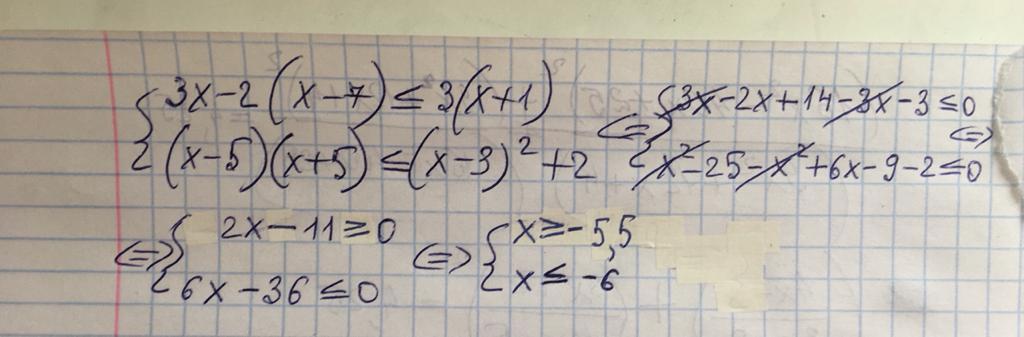 { 3x-2(x-7) ≤ 3(x+1)
{ (x-5)(x+5) ≤ (x-3)² + 2
<=> { 3x-2x+14-3x-3 ≤ 0
{ x²-25-x²+6x-9-2 ≤ 0 <=>
<=> { 2x-11 ≥ 0
{ 6x-36 ≤ 0
<=> { x ≥ -5,5
{ x ≤ -6